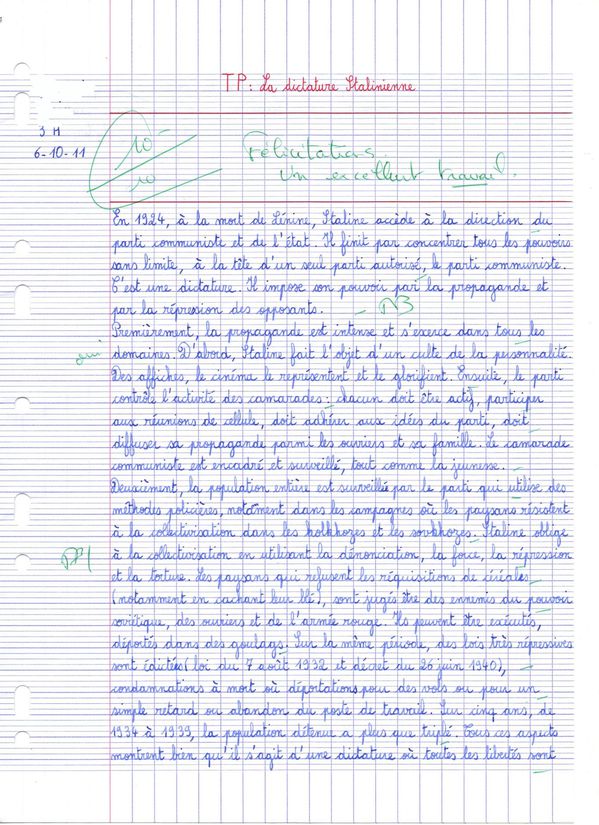 TP: La dictature Stalinienne
3 H
6-10-11
10
10
Félicitations
Un excellent travail.
En 1924, à la mort de Lénine, Staline accède à la direction du
parti communiste et de l'état. Il finit par concentrer tous les pouvoirs
sans limite, à la tête d'un seul parti autorisé, le parti communiste.
C'est une dictature. Il impose son pouvoir par la propagande et
par la répression des opposants.
Premièrement, la propagande est intense et s'exerce dans tous les
oui
domaines. D'abord, Staline fait l'objet d'un culte de la personnalité.
Des affiches, le cinéma le représentent et le glorifient. Ensuite, le parti
contrôle l'activité des camarades : chacun doit être actif, participer
aux réunions de cellule, doit adhérer aux idées du parti, doit
diffuser sa propagande parmi les ouvriers et sa famille. Le camarade
communiste est encadré et surveillé, tout comme la jeunesse.
Deuxièment, la population entière est surveillée par le parti qui utilise des
méthodes policières, notament dans les campagnes où les paysans résistent
à la collectivisation dans les kolkhozes et les sovkhozes. Staline oblige
TB
à la collectivisation en utilisant la dénonciation, la force, la répression
et la torture. Les paysans qui refusent les réquisitions de céréales
(notamment en cachant leur blé), sont jugés être des ennemis du pouvoir
soviétique, des ouvriers et de l'armée rouge. Ils peuvent être exécutés,
déportés dans des goulags. Sur la même période, des lois très répressives
sont édictées (loi du 7 août 1932 et décret du 26 juin 1940),
condamnations à mort où déportations pour des vols ou pour un
simple retard ou abandon du poste de travail. Sur cinq ans, de
1934 à 1939, la population détenue a plus que triplé. Tous ces aspects
montrent bien qu'il s'agit d'une dictature où toutes les libertés sont